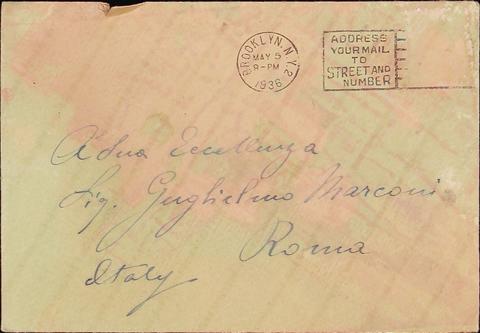 BROOKLYN, N.Y. 2
MAY 5
8-PM
1936
ADDRESS
YOUR MAIL
TO
STREET AND
NUMBER
A Sua Eccellenza
Sig. Guglielmo Marconi
Roma
Italy